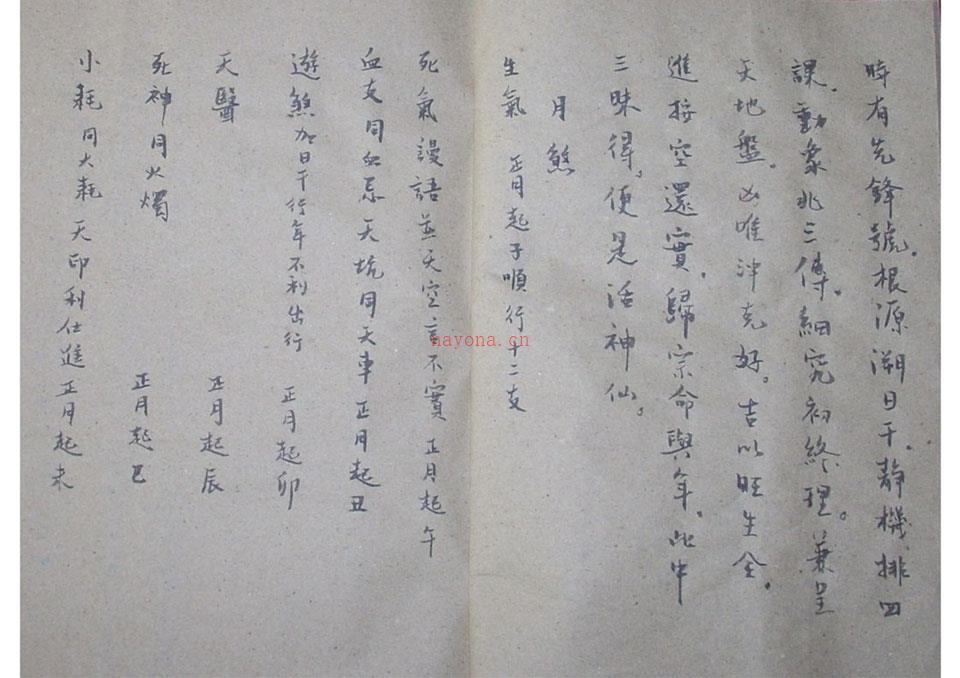 時有先鋒號。根源溯日干。靜機排四
課。動象兆三傳。細究初終理。兼呈
天地盤。凶唯沖克好。吉以旺生全。
進按空還實。歸宗命與年。此中
三昧得。便是活神仙。
月煞
生氣 正月起子順行十二支
死氣謾語並天空言不實 正月起午
血支同血忌天坑同天車 正月起丑
遊煞加日干行年不利出行 正月起卯
天醫 正月起辰
死神同火燭 正月起巳
小耗同大耗 天印利仕進 正月起未
nayona.cn